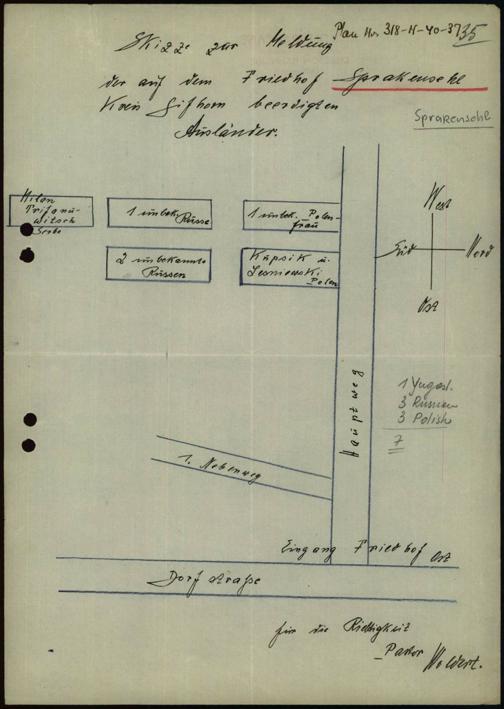 Plan No. 318-H-40-37
35
Skizze zur Meldung
der auf dem Friedhof Sprakensehl
Kreis Gifhorn beerdigten
Ausländer.
Sprakensehl
Milan
Trifanu-
witsch
Serbe
1 unbek. Russe
1 unbek. Polen-
frau
2 unbekannte
Russen
Kapsik u.
Lesniewski
Polen
West
Süd
Nord
Ost
Hauptweg
1 Yugosl.
3 Russian
3 Polish
7
1. Nebenweg
Eingang Friedhof Ost
Dorfstraße
für die Richtigkeit
Pastor